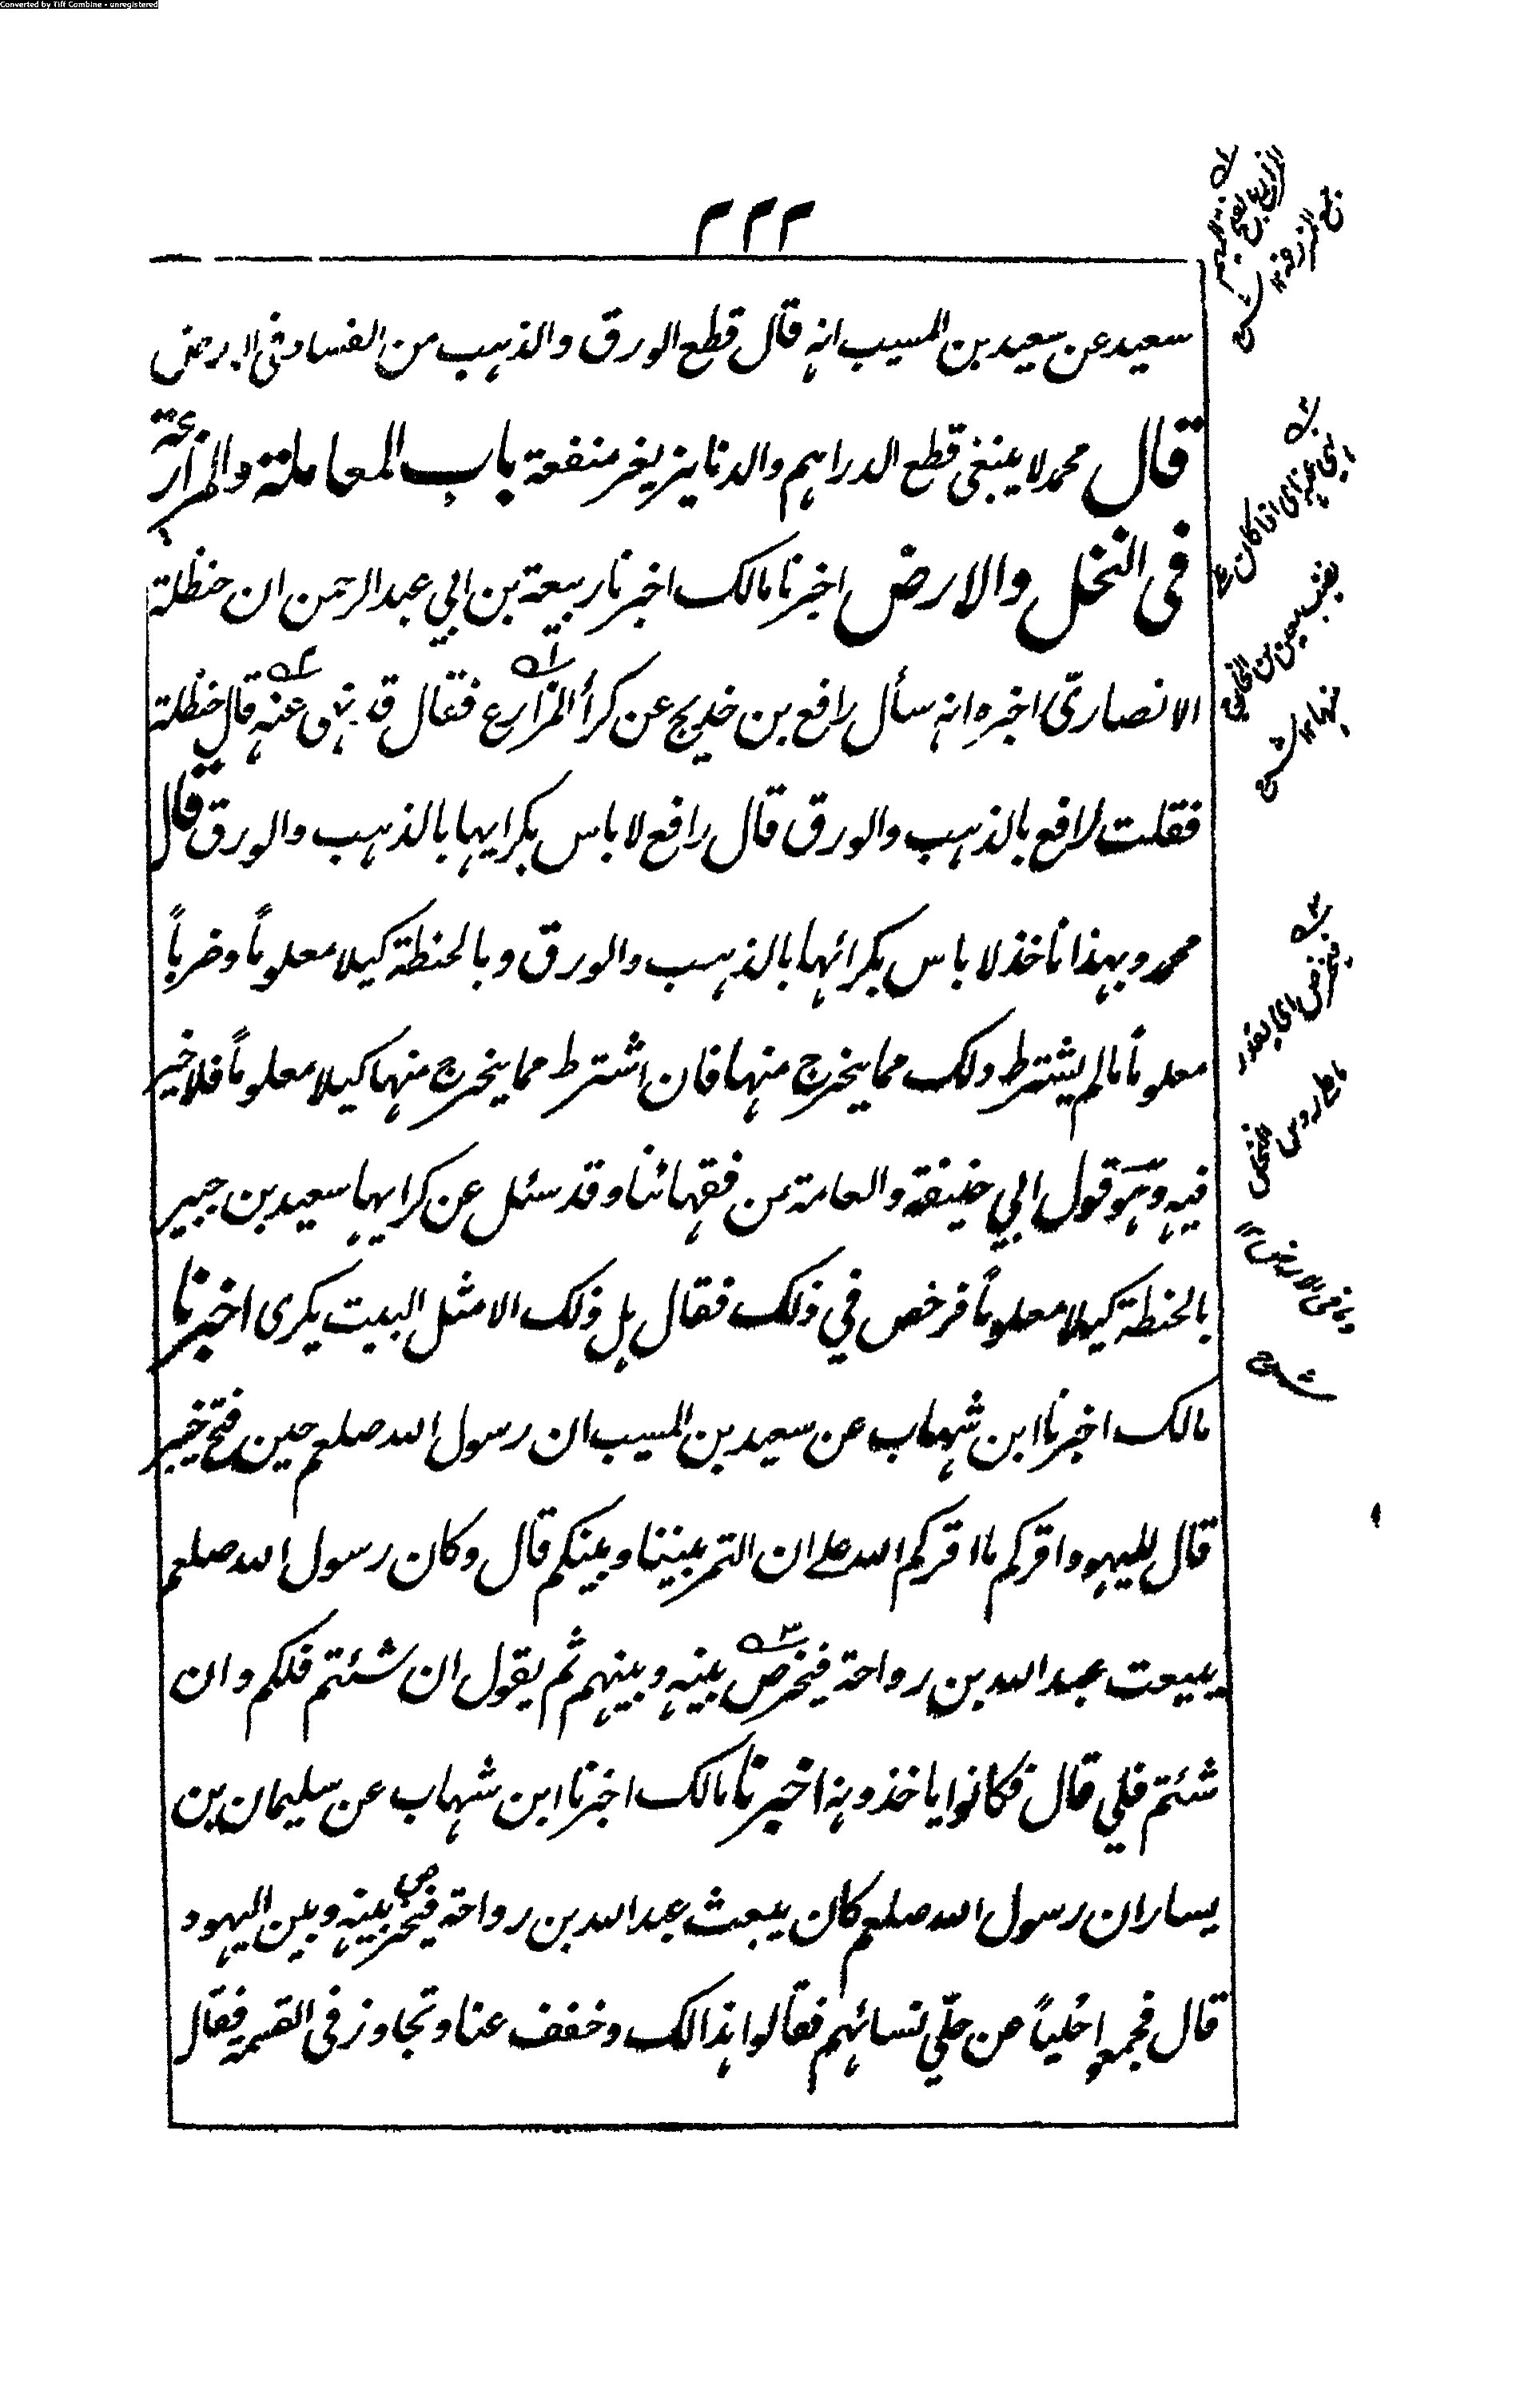 Converted by Tiff Combine - unregistered
٢٢٢
سعيد عن سعيد بن المسيب انه قال قطع الورق والذهب من الفساد في الارض
قال محمد لا ينبغي قطع الدراهم والدنانير لغير منفعة باب المعاملة والمزارعة
في النخل والارض اخبرنا مالك اخبرنا ربيعة بن ابي عبد الرحمن ان حنظلة
الانصاريّ اخبره انه سأل رافع بن خديج عن كرأ المزارع فقال قد نهى عنه قال حنظلة
فقلت لرافع بالذهب والورق قال رافع لا باس بكرايها بالذهب والورق قال
محمد وبهذا ناخذ لا باس بكرائها بالذهب والورق وبالحنطة كيلا معلوماً وضرباً
معلوماً مالم يشترط ذلك مما يخرج منها فان اشترط مما يخرج منها كيلا معلوماً فلا خير
فيه وهو قول ابي حنيفة والعامة من فقهائنا وقد سئل عن كرايها سعيد بن جبير
بالحنطة كيلا معلوماً فرخص في ذلك فقال هل ذلك الا مثل البيت يكرى اخبرنا
مالك اخبرنا ابن شهاب عن سعيد بن المسيب ان رسول الله صلعم حين فتح خيبر
قال لليهود اقركم ما اقركم الله على ان التمر بيننا وبينكم قال وكان رسول الله صلعم
يبعث عبد الله بن رواحة فيخرص بينه وبينهم ثم يقول ان شئتم فلكم وان
شئتم فلي قال فكانوا ياخذونه اخبرنا مالك اخبرنا ابن شهاب عن سليمان بن
يسار ان رسول الله صلعم كان يبعث عبد الله بن رواحة فيخرص بينه وبين اليهود
قال فجمعوا حُلياً من حلّي نسائهم فقالوا هذا لك وخفف عنا وتجاوز في القسمة فقال
فيخرص اي يقدر
ما على رؤس النخل
وما في الارض